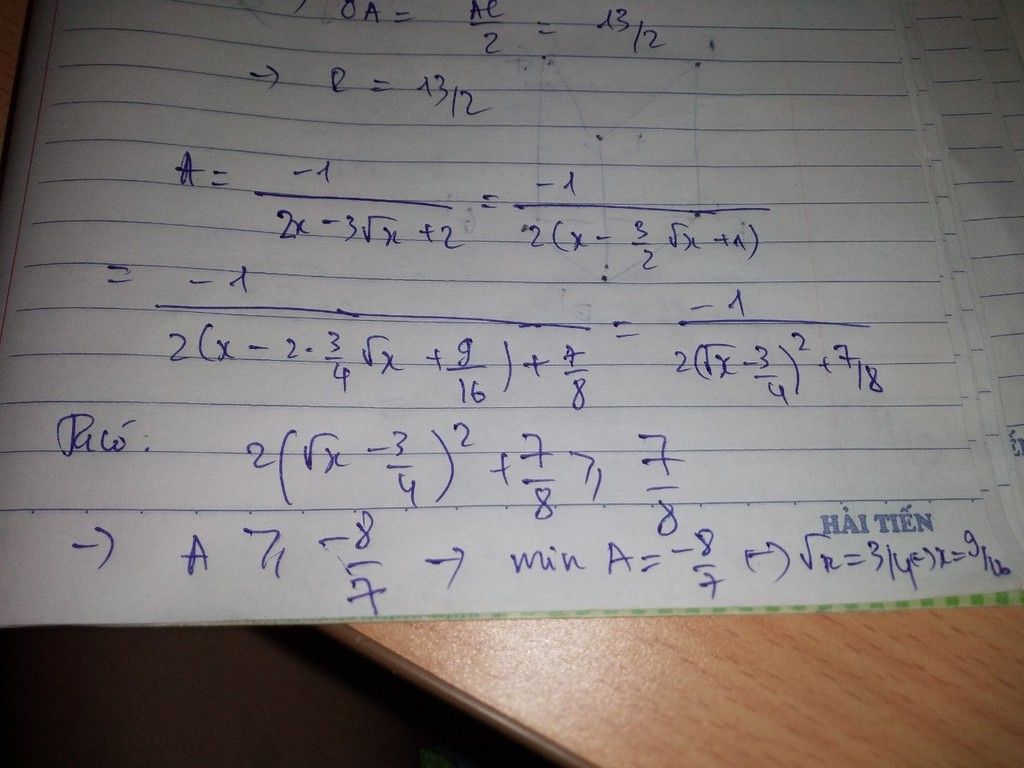 OA = AC/2 = 13/2
→ R = 13/2
A = -1/(2x - 3√x + 2) = -1/(2(x - 3/2 √x + 1))
= -1/(2(x - 2·3/4 √x + 9/16) + 7/8) = -1/(2(√x - 3/4)² + 7/8)
Ta có: 2(√x - 3/4)² + 7/8 ≥ 7/8
HẢI TIẾN
→ A ≥ -8/7 → min A = -8/7 ↔ √x = 3/4 ↔ x = 9/16